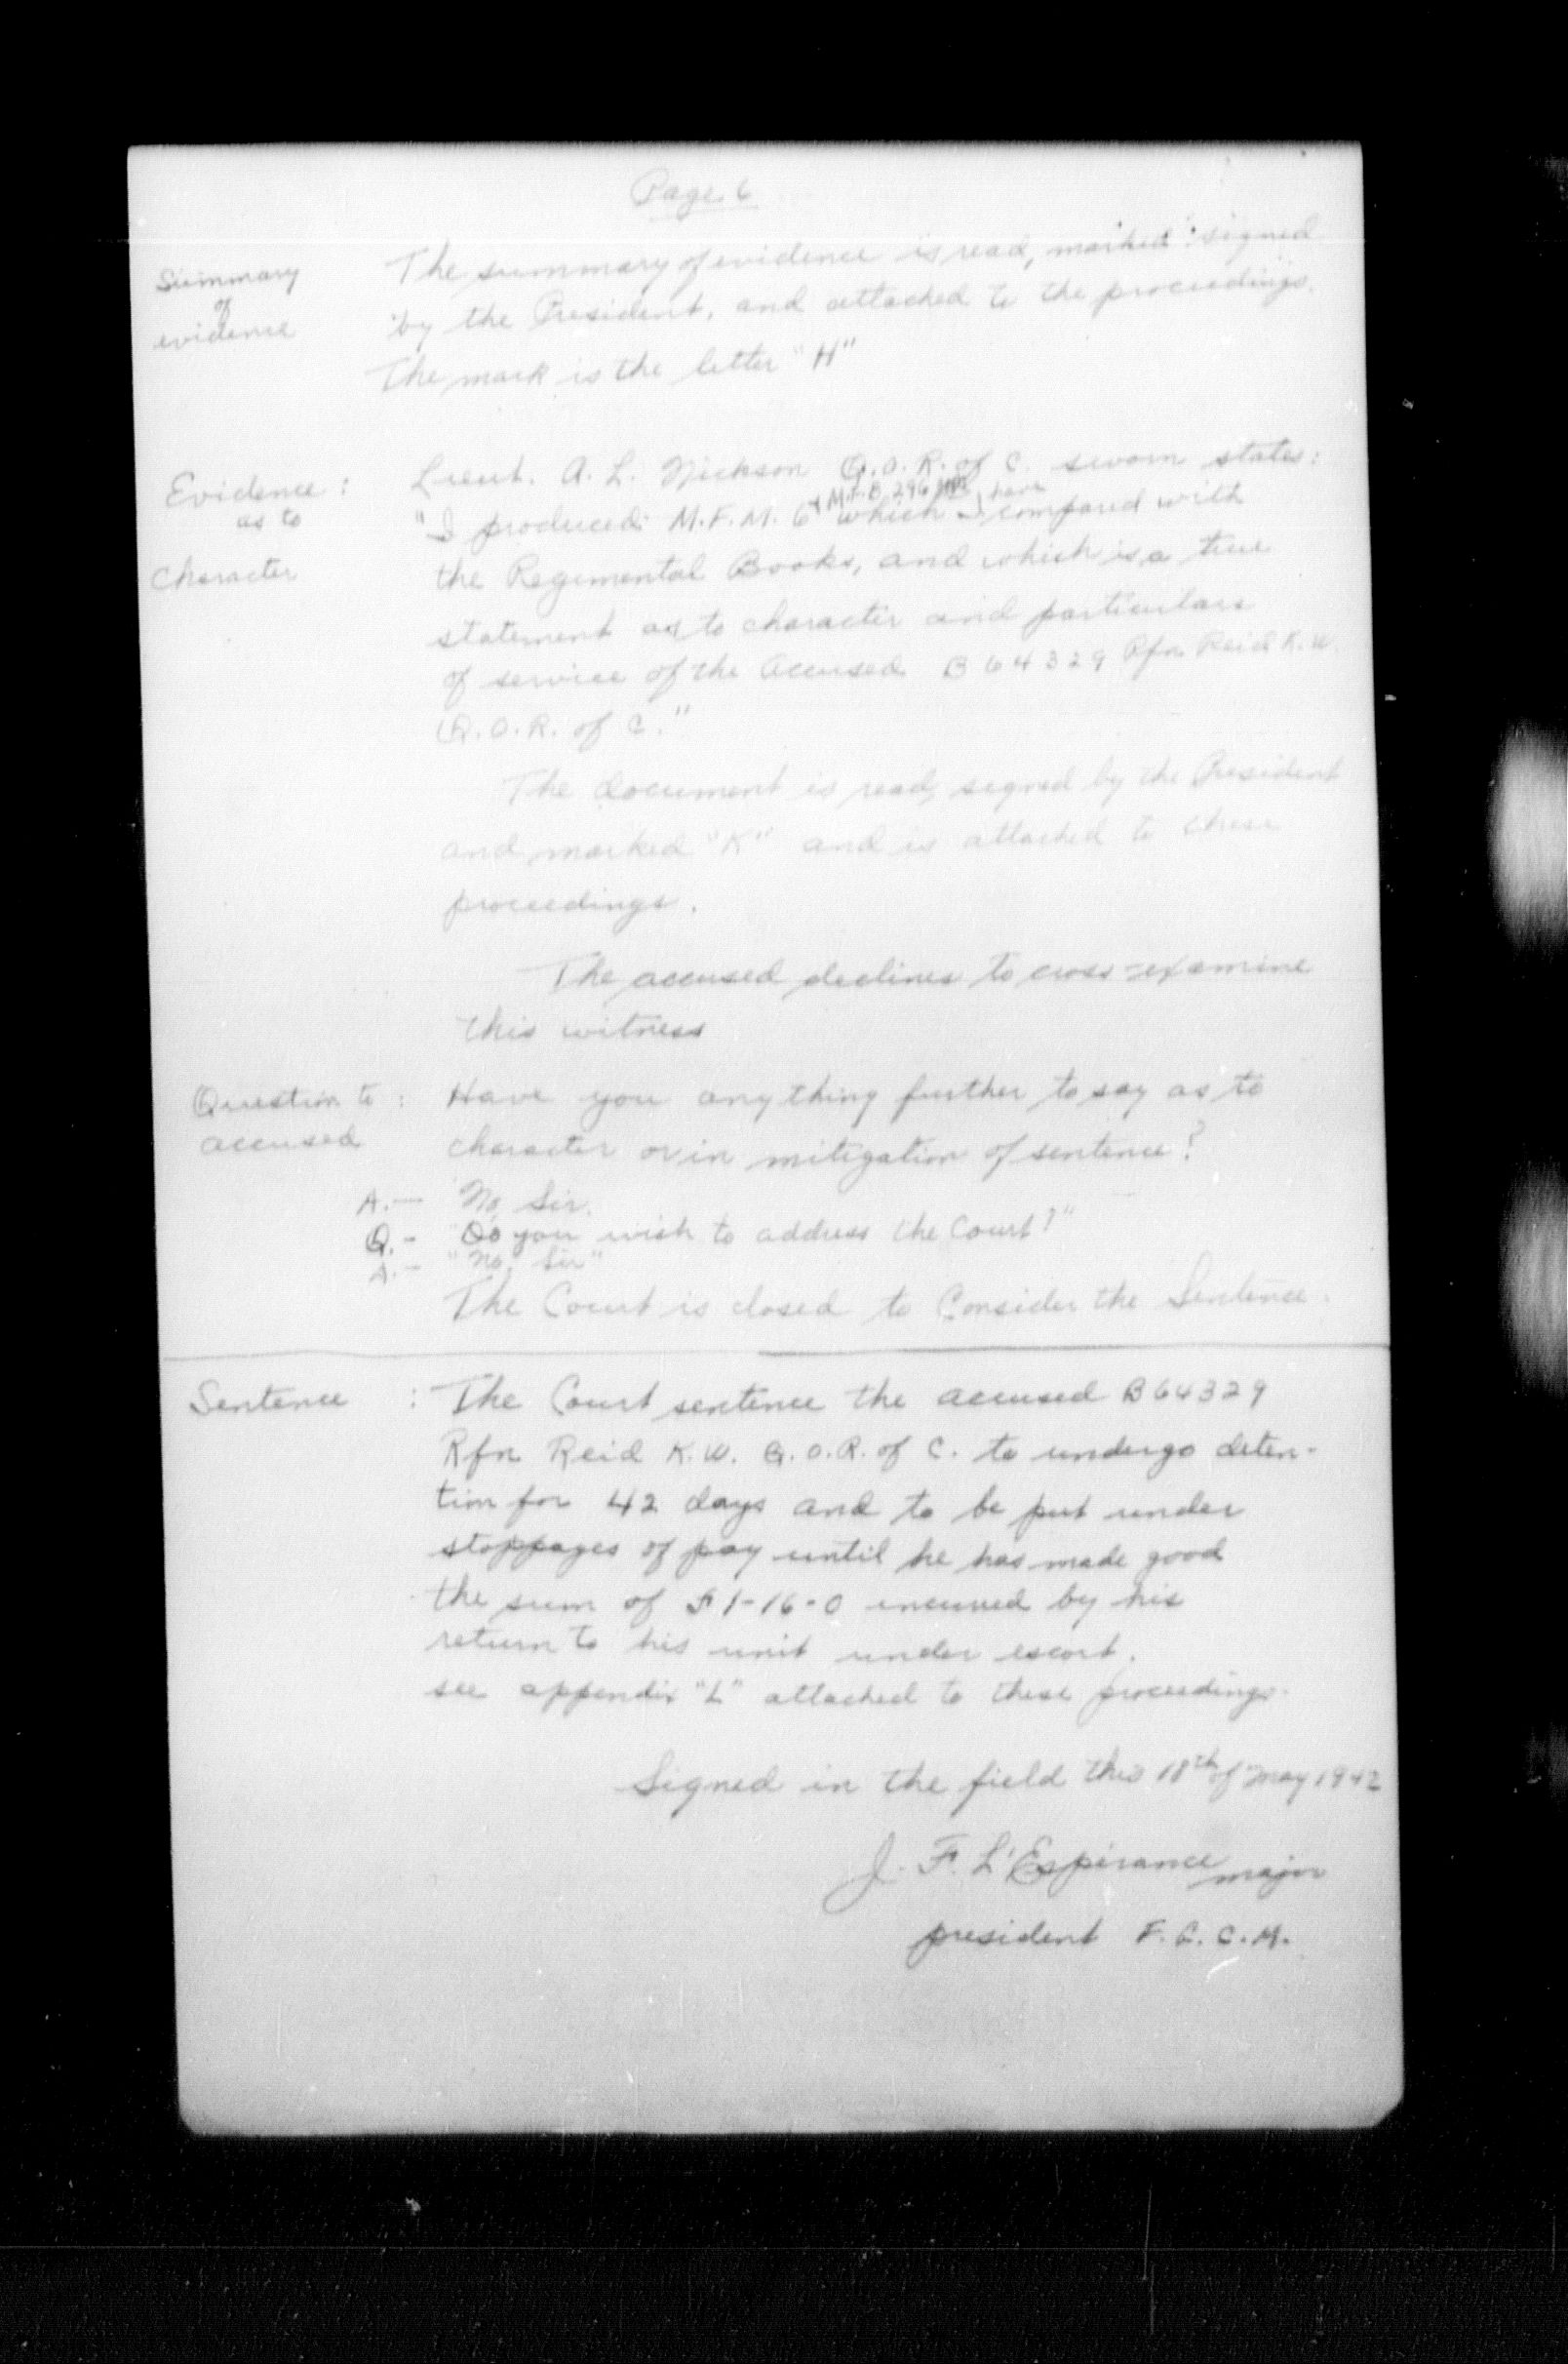 Page 6
Summary
of
evidence
The summary of evidence is read, marked & signed
by the President, and attached to the proceedings.
The mark is the letter "H"
Evidence :
as to
Character
Lieut. A. L. Nickson Q.O.R. of C. sworn states:
+ M.F.B 296 have
"I produced M.F.M. 6 which I compared with
the Regimental Books, and which is a true
statement as to character and particulars
of service of the Accused B 64329 Rfn Reid K.W.
Q.O.R. of C."
The document is read, signed by the President
and marked "K" and is attached to these
proceedings.
The accused declines to cross-examine
this witness
Question to :
accused
Have you anything further to say as to
character or in mitigation of sentence?
A.— No, Sir.
Q.- "Do you wish to address the Court?"
A.— "No, Sir"
The Court is closed to Consider the Sentence.
Sentence : The Court sentence the accused B64329
Rfn Reid K.W. Q.O.R. of C. to undergo deten-
tion for 42 days and to be put under
stoppages of pay until he has made good
the sum of £1-16-0 incurred by his
return to his unit under escort.
see appendix "L" attached to these proceedings.
Signed in the field this 18th of May 1942
J. F. L'Espérance major
president F.G.C.M.